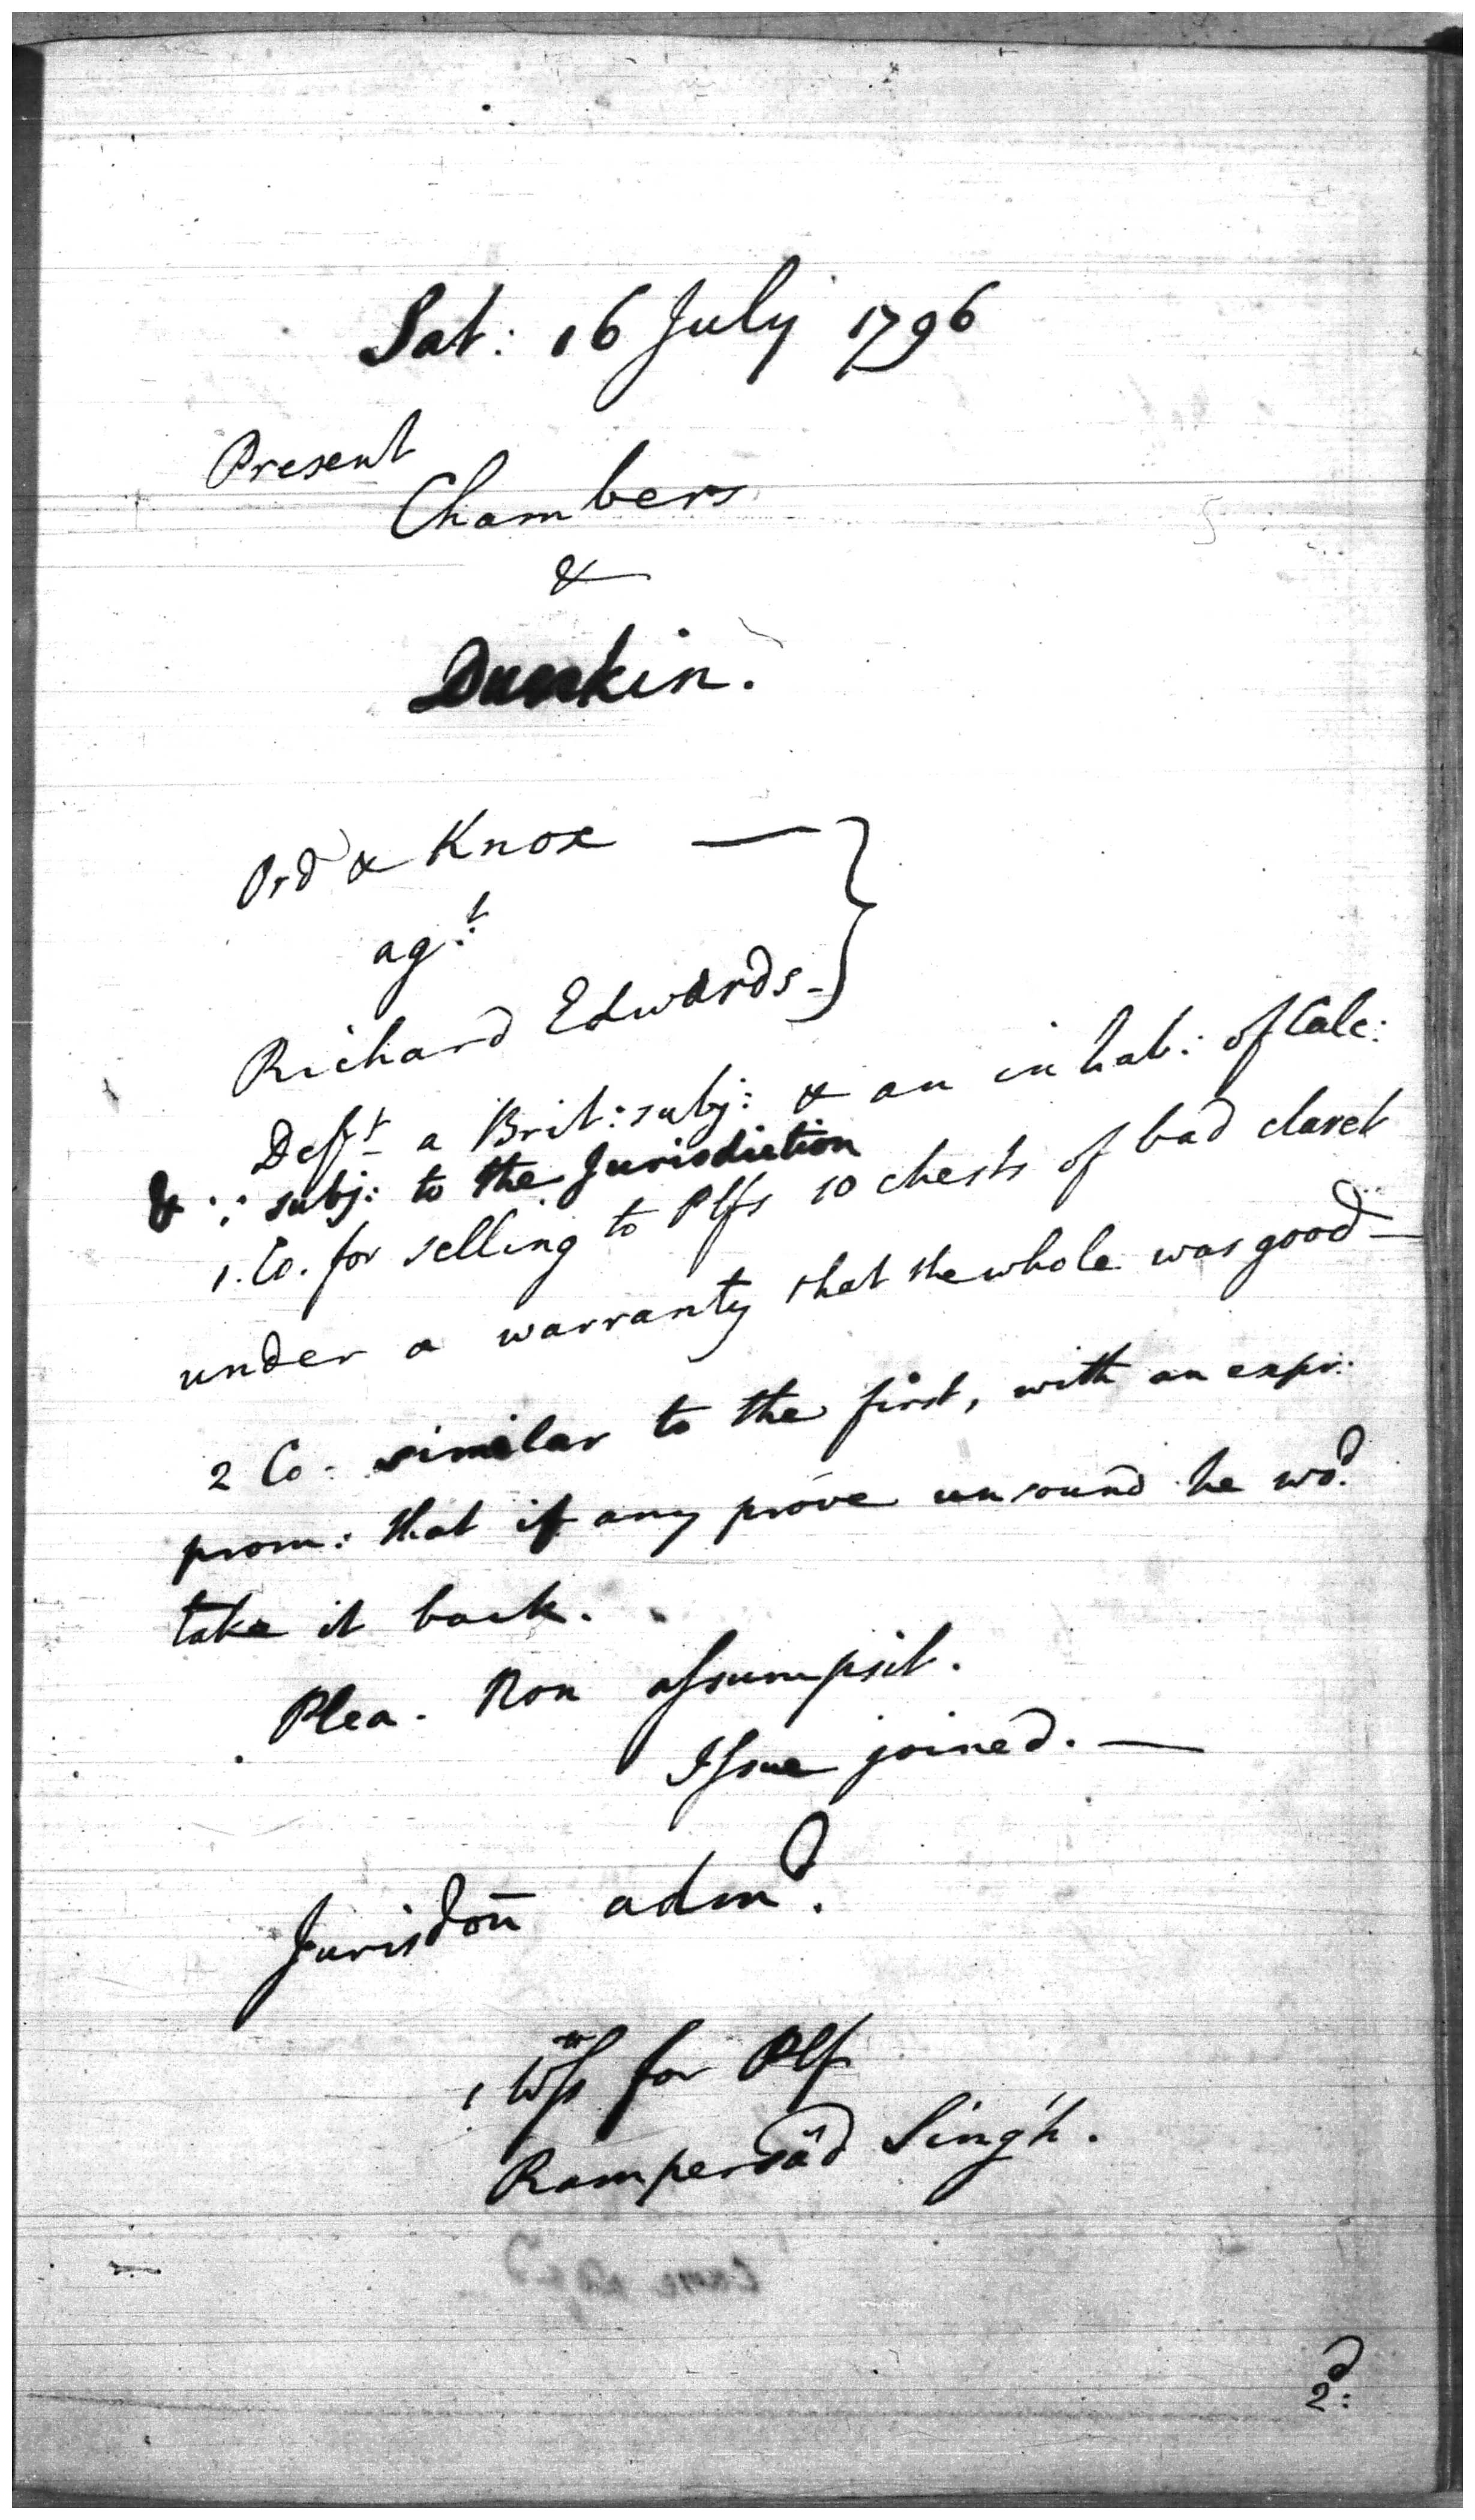 Sat: 16 July 1796
Present
Chambers
&
Dunkin.
Ord & Knox —
agt.
Richard Edwards-
Deft a Brit: subj: & an inhab: of Calc:
& ∵ subj: to the Jurisdiction
1. Co. for selling to Plfs 10 chests of bad claret
under a warranty that the whole was good —
2 Co. similar to the first, with an expr:
prom: that if any prove unsound he wod.
take it back.
Plea. Non assumpsit.
Issue joined. —
Jurisdon admd.
1 Wss for Plf
Rampersâd Singh.
2d: